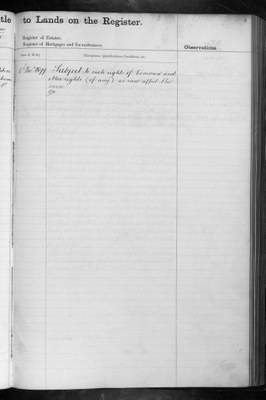 tle to Lands on the Register.
Register of Estates.
Register of Mortgages and Incumbrances.
Observations
Exceptions, Qualifications, Conditions, &c.
Subject to such rights of Common and
other rights (if any) as now affect the
same.